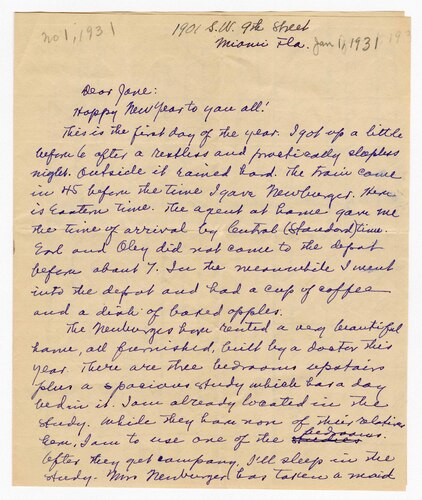 no 1, 1931
1901 S.W. 9th Street
Miami Fla.
Jan 1, 1931
193
Dear Jane:
Happy New Year to you all!
This is the first day of the year. I got up a little
before 6 after a restless and practically sleepless
night. Outside it rained hard. The train came
in 45 before the time I gave Newburger. Here
is Eastern time. The agent at home gave me
the time of arrival by Central (Standard) time.
Earl and Oley did not come to the depot
before about 7. In the meanwhile I went
into the depot and had a cup of coffee
and a dish of baked apples.
The Newburges have rented a very beautiful
home, all furnished, built by a doctor this
year. There are three bedrooms upstairs
plus a spacious study which has a day
bed in it. I am already located in the
study. While they have non of their relatives
here, I am to use one of the bedrooms.
After they get company, I'll sleep in the
study. Mrs Newburger has taken a maid